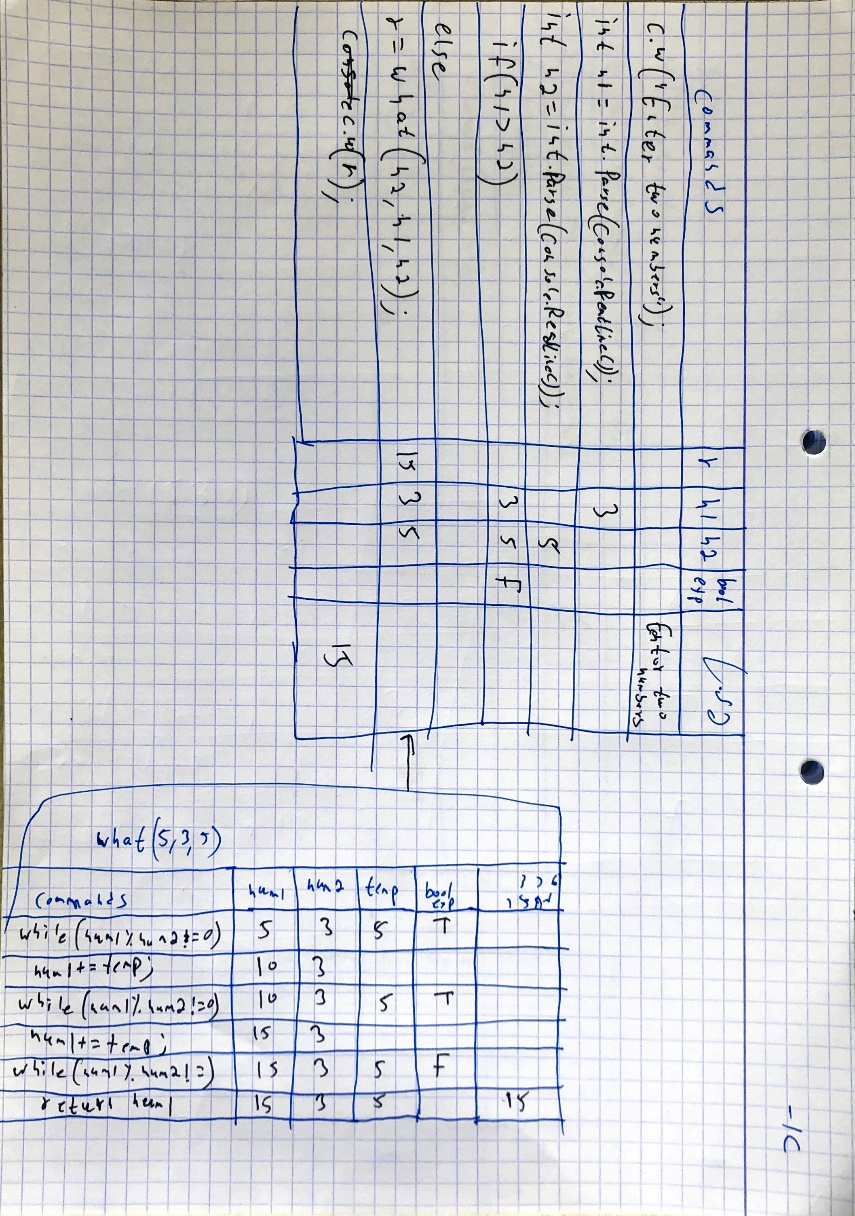 commands r n1 n2 bool exp
c.w("Enter two numbers"); Enter two numbers
int n1 = int.Parse(Console.Readline()); 3
int n2 = int.Parse(Console.Readline()); 5
if(n1>n2) 3 5 F
else
r = what(n2,n1,n2); 15 3 5
c.w(r); 15
what(5,3,5)
commands num1 num2 temp bool exp
while(num1%num2!=0) 5 3 5 T
num1+=temp; 10 3
while(num1%num2!=0) 10 3 5 T
num1+=temp; 15 3
while(num1%num2!=) 15 3 5 F
return num1 15 3 5 15